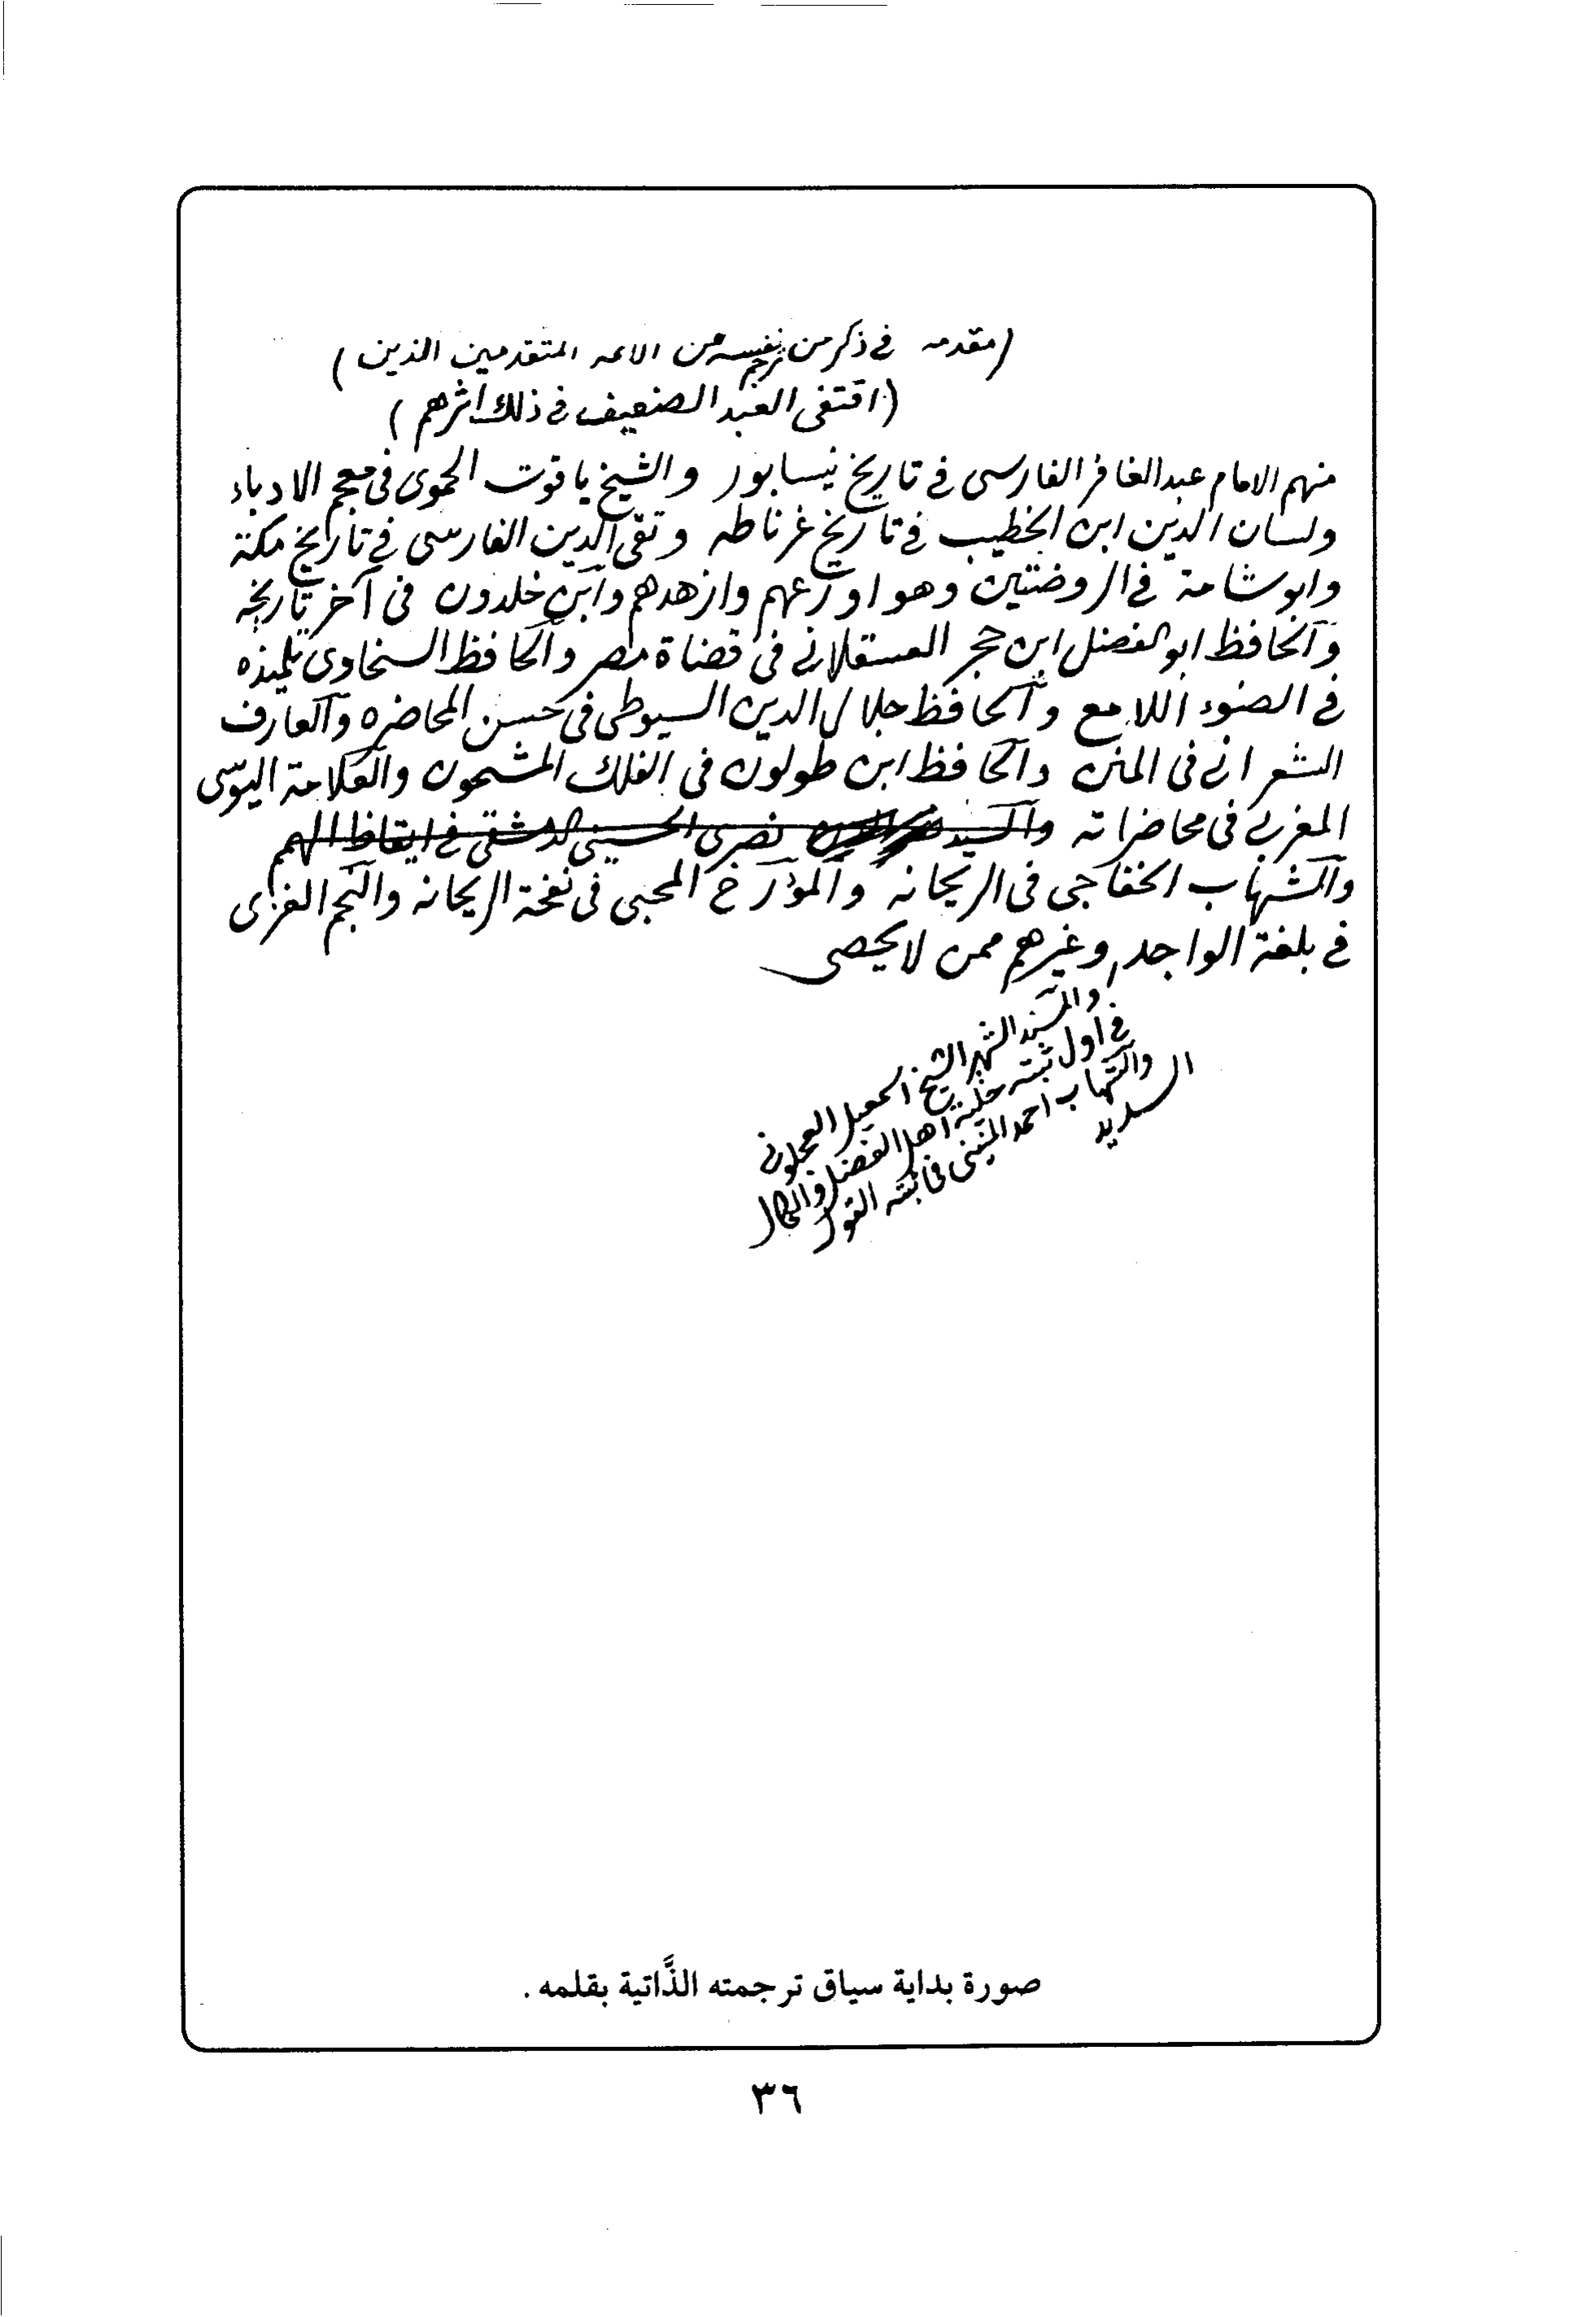 (مقدمه في ذكر من ترجم نفسه من الائمه المتقدمين الذين)
(اقتفى العبد الضعيف في ذلك اثرهم)
منهم الامام عبد الغافر الفارسي في تاريخ نيسابور والشيخ ياقوت الحموى في معجم الادباء
ولسان الدين ابن الخطيب في تاريخ غرناطه وتقي الدين الفارسى في تاريخ مكة
وابو شامة في الروضتين وهو اورعهم وازهدهم وابن خلدون في آخر تاريخه
والحافظ ابو الفضل ابن حجر العسقلاني في قضاة مصر والحافظ السخاوى تلميذه
في الضوء اللامع والحافظ جلال الدين السيوطى في حسن المحاضره والعارف
الشعراني في المنن والحافظ ابن طولون في الفلك المشحون والعلامة اليوسى
المغربي في محاضراته والسيد نصرى الحسيني الدمشقى في ايقاظ الهمم
والشهاب الخفاجي في الريحانه والمؤرخ المحبي في نفحة الريحانه والنجم الغزى
في بلغة الواجد وغيرهم ممن لا يحصى
والمسند الشهير الشيخ اسمعيل العجلوني
في اول ثبته حلية اهل الفضل والكمال
والشهاب احمد المنيني في ثبته القول
السديد
صورة بداية سياق ترجمته الذَّاتية بقلمه .
٣٦